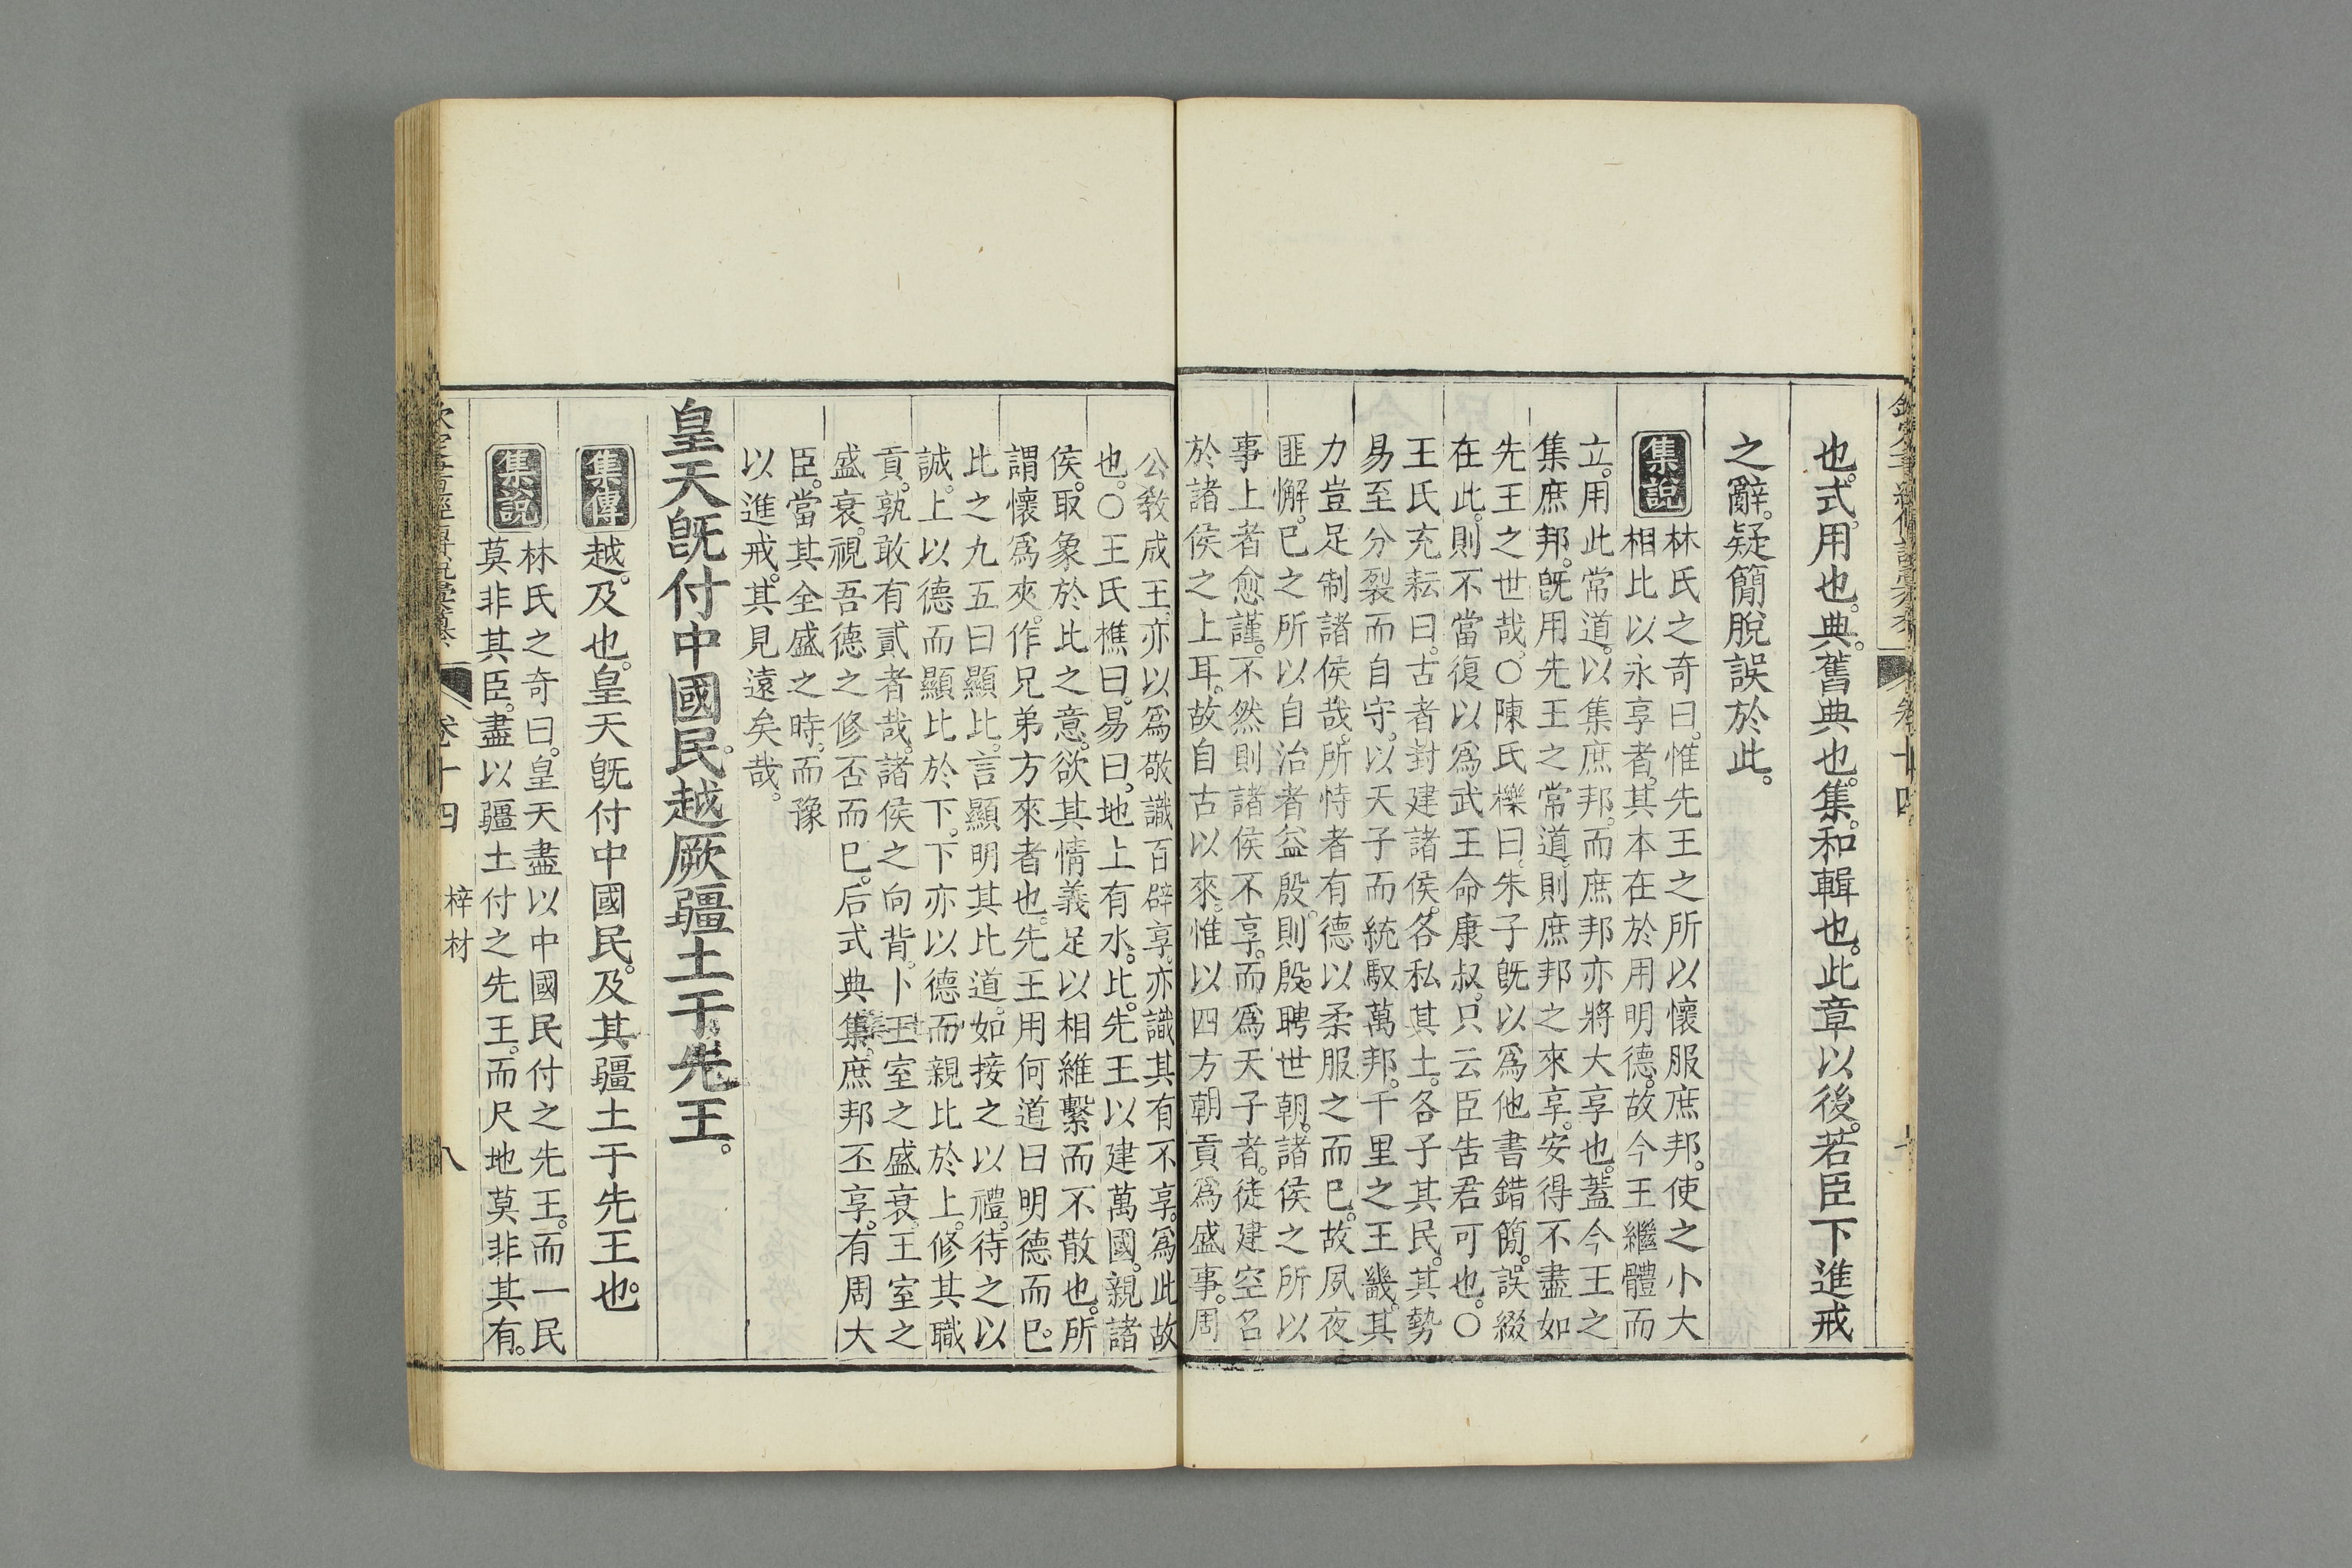 也。式。用也。典。舊典也。集。和輯也。此章以後。若臣下進戒
之辭。疑簡脫誤於此。
集說
林氏之奇曰。惟先王之所以懷服庶邦。使之小大
相比以永享者。其本在於用明德。故今王繼體而
立。用此常道。以集庶邦。而庶邦亦將大享也。蓋今王之
集庶邦。旣用先王之常道。則庶邦之來享。安得不盡如
先王之世哉。○陳氏櫟曰。朱子旣以爲他書錯簡。誤綴
在此。則不當復以爲武王命康叔。只云臣告君可也。○
王氏充耘曰。古者封建諸侯。各私其土。各子其民。其勢
易至分裂而自守。以天子而統馭萬邦。千里之王畿。其
力豈足制諸侯哉。所恃者有德以柔服之而已。故夙夜
匪懈。已之所以自治者益殷。則殷聘世朝。諸侯之所以
事上者愈謹。不然則諸侯不享。而爲天子者。徒建空名
於諸侯之上耳。故自古以來。惟以四方朝貢爲盛事。周
公敎成王。亦以爲敬識百辟享。亦識其有不享。爲此故
也。○王氏樵曰。易曰。地上有水。比。先王以建萬國。親諸
侯。取象於此之意。欲其情義足以相維繫而不散也。所
謂懷爲夾。作兄弟方來者也。先王用何道曰明德而已。
比之九五曰顯比。言顯明其比道。如接之以禮。待之以
誠。上以德而顯比於下。下亦以德而親比於上。修其職
貢。孰敢有貳者哉。諸侯之向背。卜王室之盛衰。王室之
盛衰。視吾德之修否而已。后式典集。庶邦丕享。有周大
臣。當其全盛之時。而豫
以進戒。其見遠矣哉。
皇天旣付中國民。越厥疆土于先王。
集傳
越。及也。皇天旣付中國民。及其疆土于先王也。
集說
林氏之奇曰。皇天盡以中國民付之先王。而一民
莫非其臣。盡以疆土付之先王。而尺地莫非其有。
卷十四
梓材
八